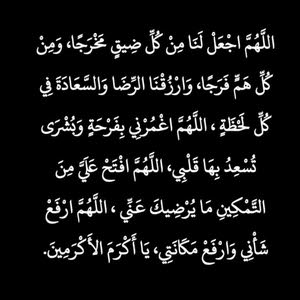 اللَّهُمَّ اجْعَلْ لَنَا مِنْ كُلِّ ضِيقٍ مَخْرَجًا، وَمِنْ
كُلِّ هَمٍّ فَرَجًا، وَارْزُقْنَا الرِّضَا وَالسَّعَادَةَ فِي
كُلِّ لَحْظَةٍ ، اللَّهُمَّ اغْمُرْنِي بِفَرْحَةٍ وَبُشْرَى
تُسْعِدُ بِهَا قَلْبِي، اللَّهُمَّ افْتَحْ عَلَيَّ مِنَ
التَّمْكِينِ مَا يُرْضِيكَ عَنِّي ، اللَّهُمَّ ارْفَعْ
شَأْنِي وَارْفَعْ مَكَانَتِي، يَا أَكْرَمَ الأَكْرَمِينَ.